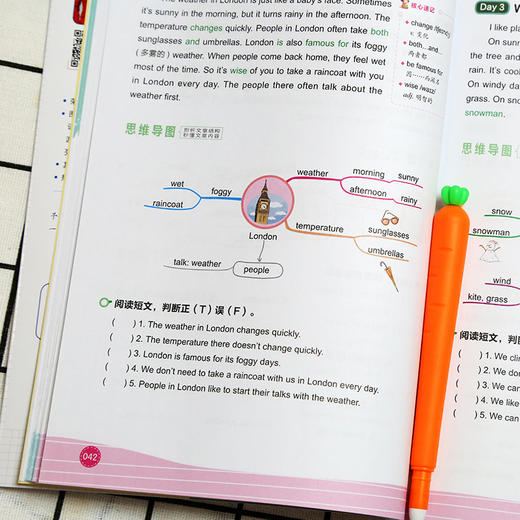 The weather in London is just like a baby's face. Sometimes
it's sunny in the morning, but it turns rainy in the afternoon. The
temperature changes quickly. People in London often take both
sunglasses and umbrellas. London is also famous for its foggy
(多雾的) weather. When people come back home, they feel wet
most of the time. So it's wise of you to take a raincoat with you
in London every day. The people there often talk about the
weather first.
核心速记
change /tʃeɪndʒ/
v. 变化
both...and...
两者都
be famous for
因……而闻名
wise /waɪz/
adj. 明智的
思维导图
剖析文章结构
秒懂文章内容
wet
raincoat
foggy
weather
morning
sunny
afternoon
rainy
London
temperature
sunglasses
umbrellas
talk: weather
people
阅读短文，判断正（T）误（F）。
( ) 1. The weather in London changes quickly.
( ) 2. The temperature there doesn't change quickly.
( ) 3. London is famous for its foggy days.
( ) 4. We don't need to take a raincoat with us in London every day.
( ) 5. People in London like to start their talks with the weather.
042
Day 3 W
I like
the tree and
rain. It's coo
On windy da
grass. On sno
snowman.
思维导图
snow
snowman
wind
kite, grass
阅读短文，判断正
( ) 1. We clim
( ) 2. We
( ) 3. We can
( ) 4. We
( ) 5. We can